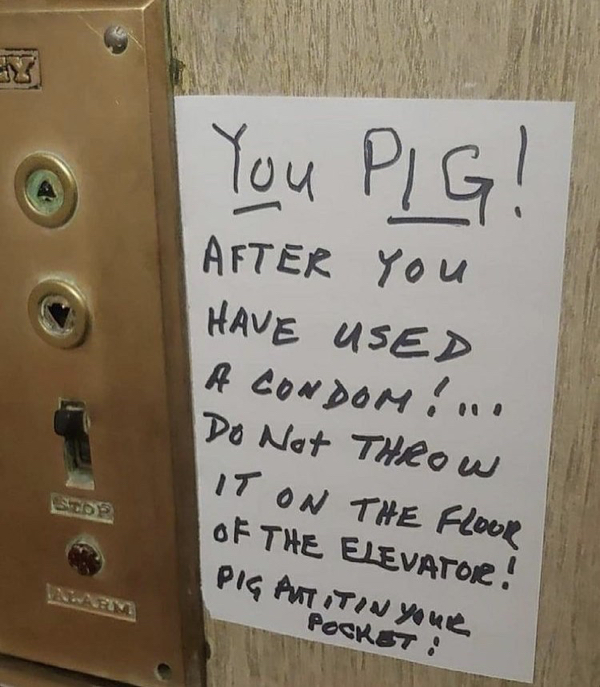 You PIG!
AFTER YOU
HAVE USED
A CONDOM!...
Do Not THROW
IT ON THE FLOOR
OF THE ELEVATOR!
PIG PUT IT IN YOUR
POCKET!
STOP
ALARM